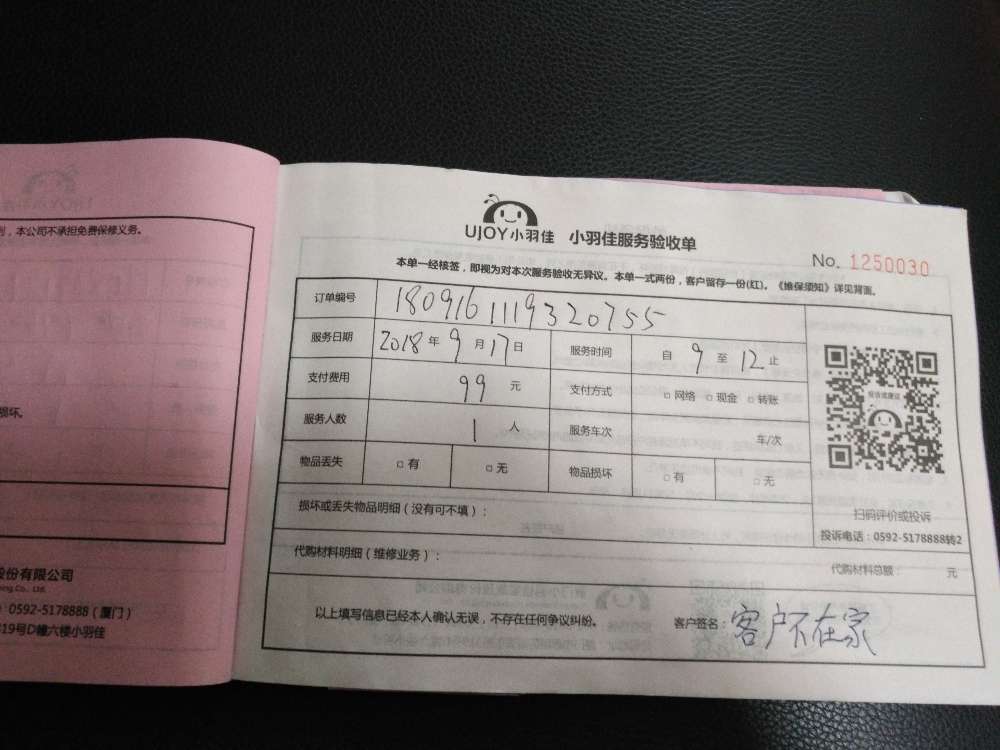 则，本公司不承担免费保修义务。
损坏。
股份有限公司
ning Co., Ltd.
：0592-5178888（厦门）
419号D幢六楼小羽佳
UJOY小羽佳 小羽佳服务验收单
No. 1250030
本单一经核签，即视为对本次服务验收无异议。本单一式两份，客户留存一份(红)。《维保须知》详见背面。
订单编号 1809161119320755
服务日期 2018年9月17日 服务时间 自9至12止
支付费用 99元 支付方式 □网络 □现金 □转账
服务人数 1人 服务车次 车/次
物品丢失 □有 □无 物品损坏 □有 □无
扫码评价或投诉
投诉电话：0592-5178888转2
损坏或丢失物品明细（没有可不填）：
代购材料明细（维修业务）： 代购材料总额： 元
以上填写信息已经本人确认无误，不存在任何争议纠纷。 客户签名：客户不在家